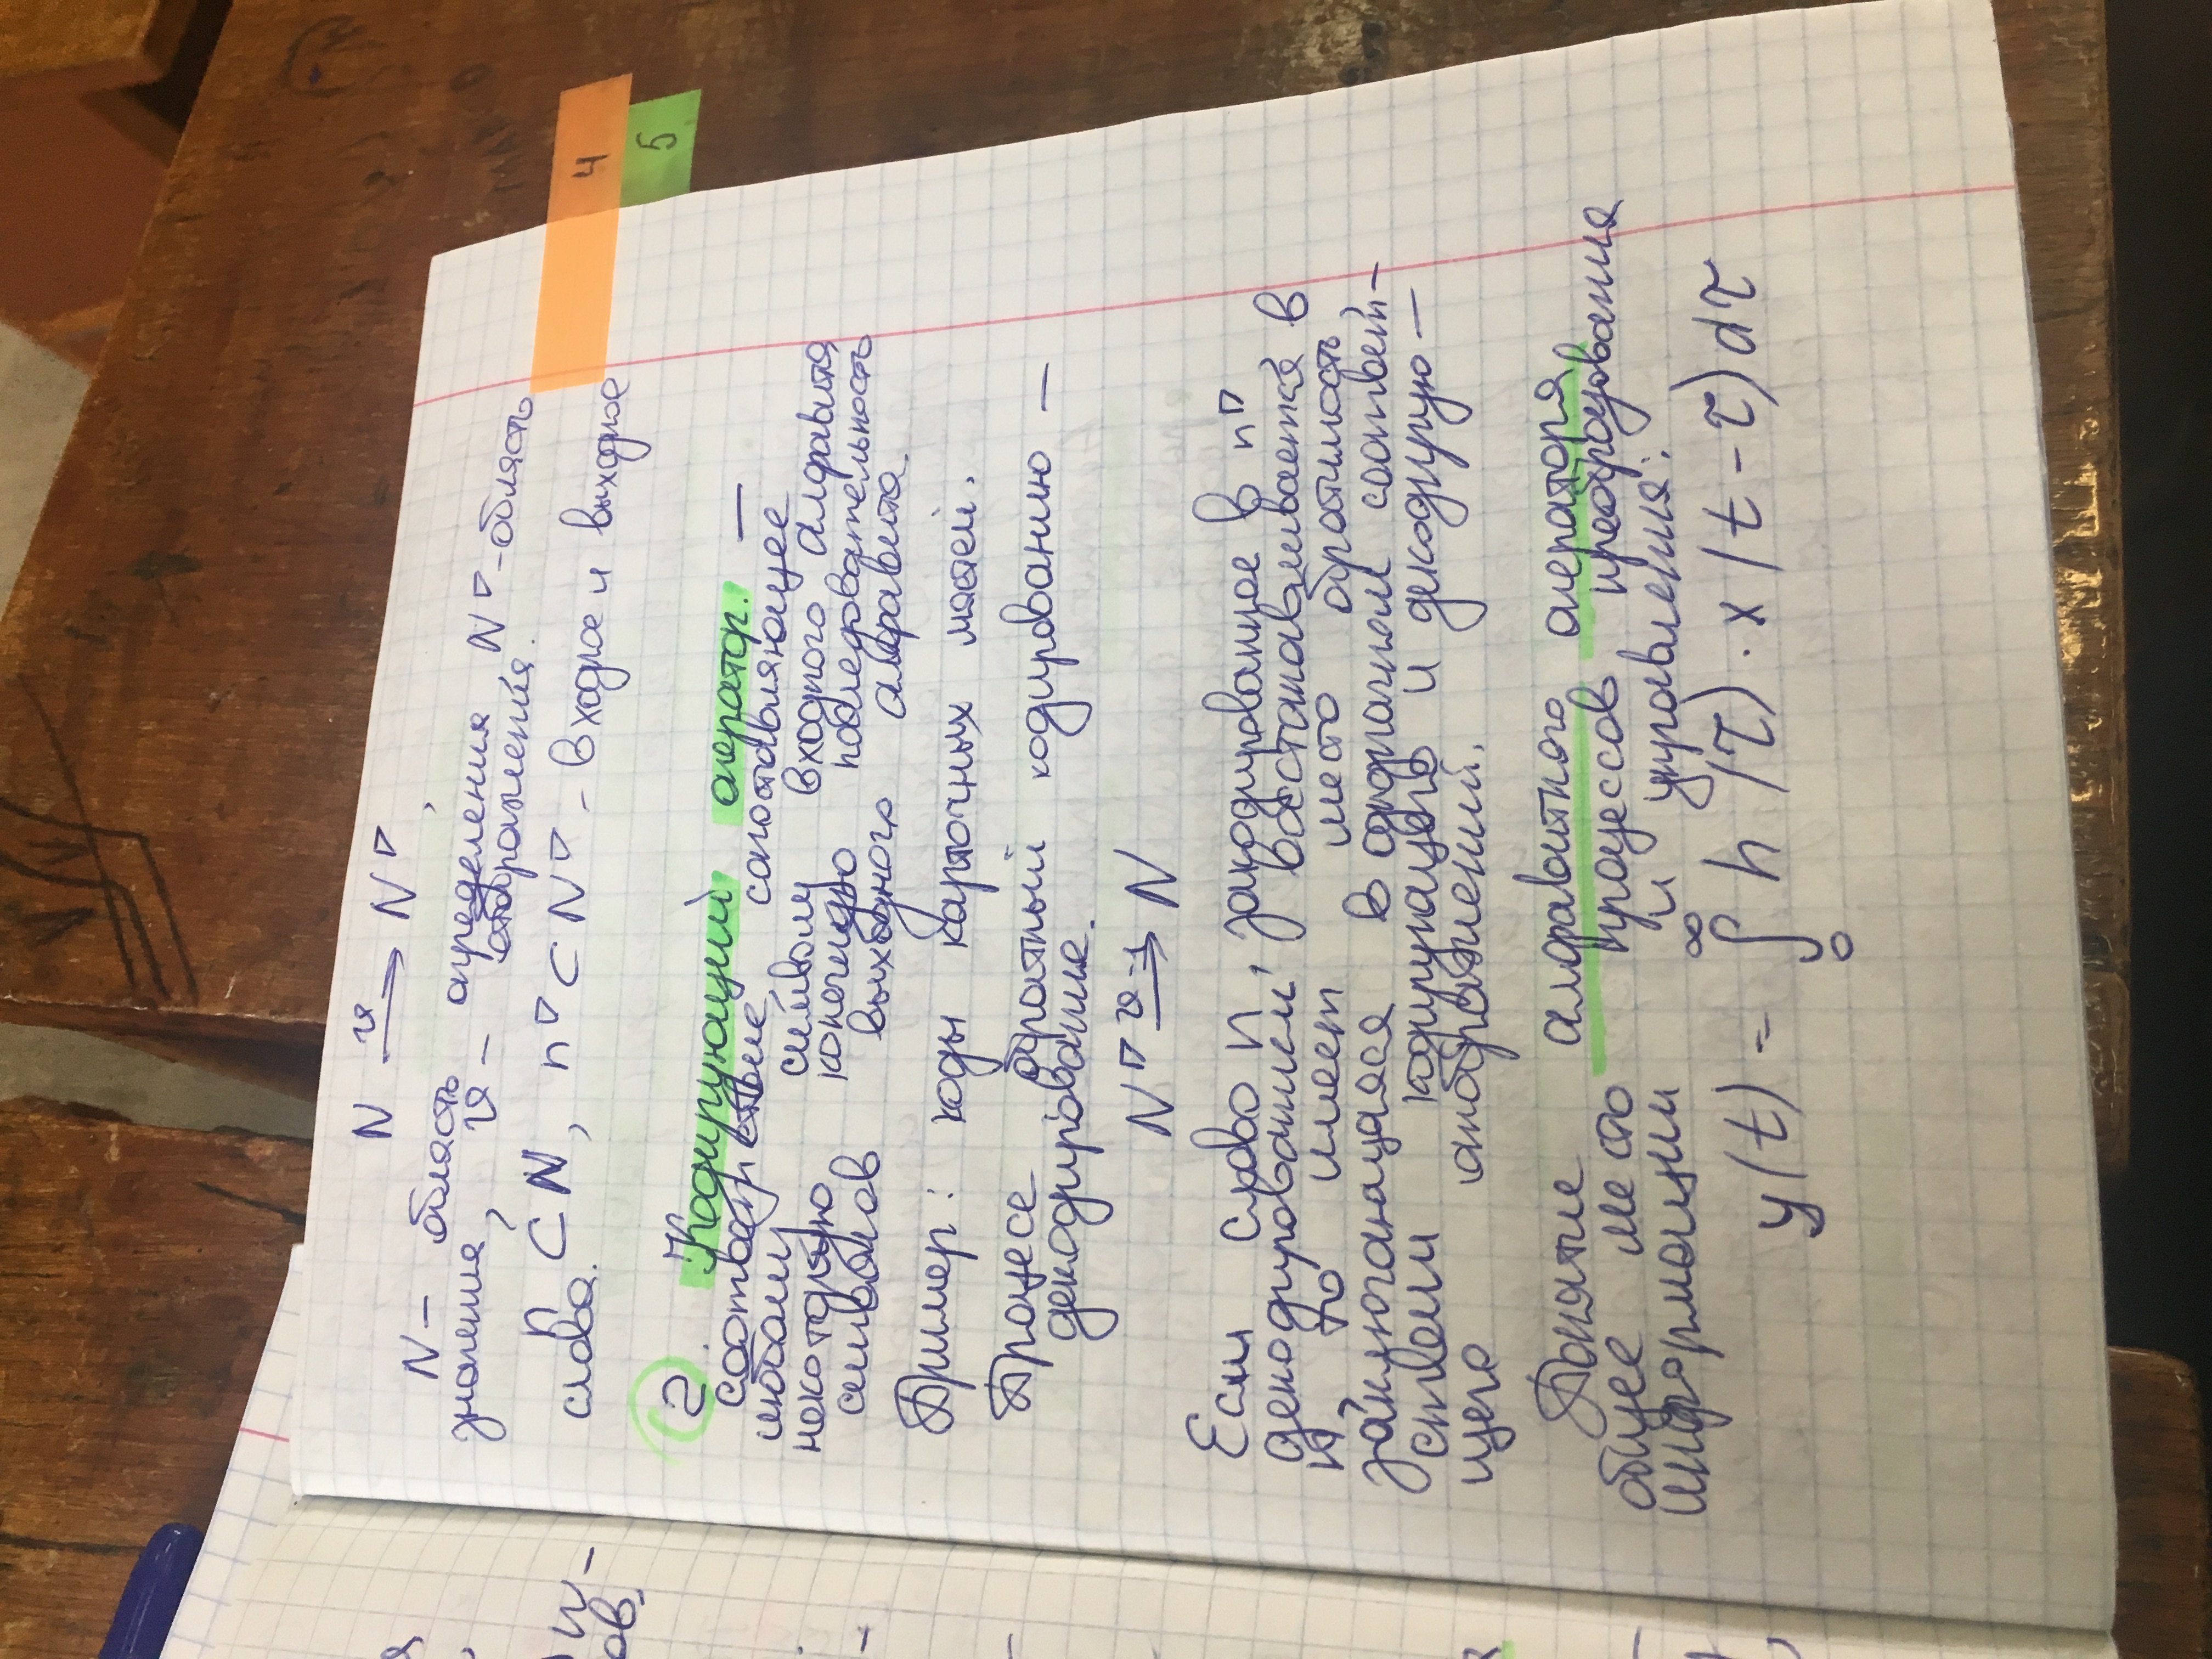 N ϑ→ N▽,
N – область определения, N▽ - область
значения, ϑ – отображения.
n ⊂ N, n▽ ⊂ N▽ - входное и выходное
слова.
4
5
2. Кодирующий оператор. —
соответствие, сопоставляющее
любому символу входного алфавита
некоторую конечную последовательность
символов выходного алфавита.
Пример: коды карточных мастей.
Процесс, обратный кодированию —
декодирование.
N▽ ϑ-1→ N
Если слово n, закодированное в n▽,
декодированием восстанавливается в
n, то имеет место обратимость,
заключающаяся в однозначном соответ-
ствии кодирующего и декодирую-
щего отображений.
Понятие алфавитного оператора
общее место процессов, преобразования
информации и управления:
y(t) = ∫₀^∞ h(τ) · x(t - τ)dτ